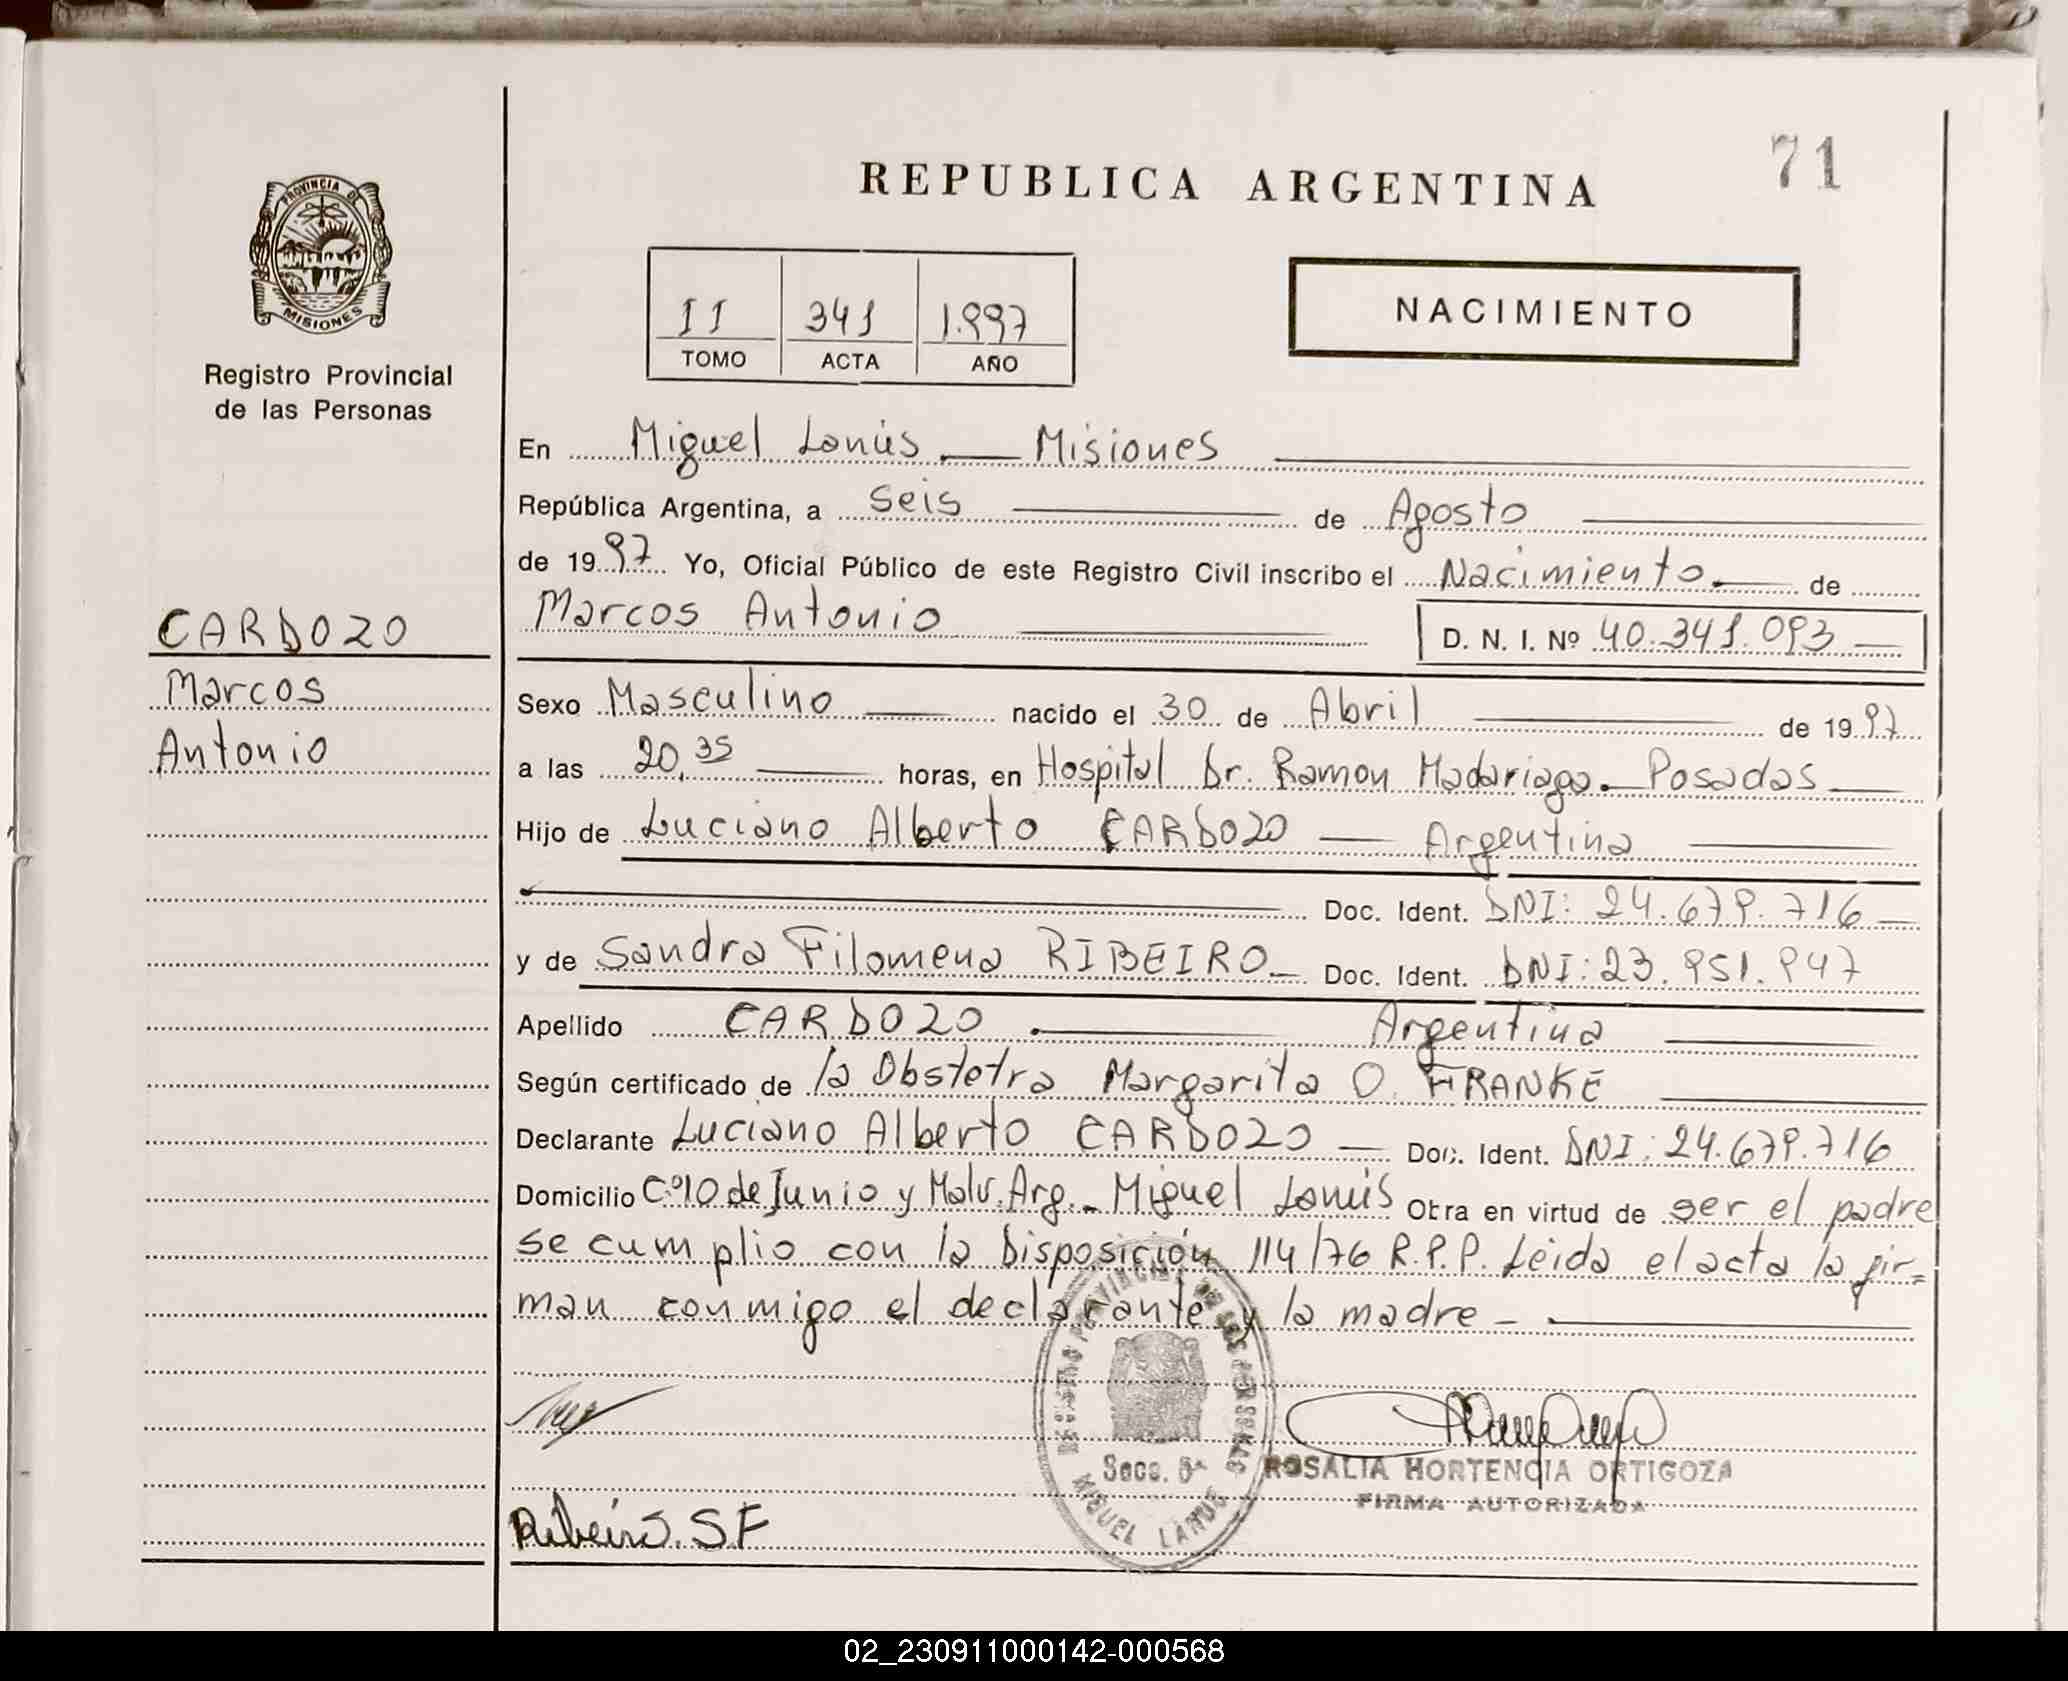 REPUBLICA ARGENTINA
71
PROVINCIA DE
MISIONES
Registro Provincial
de las Personas
II 341 1.997
TOMO ACTA AÑO
NACIMIENTO
En Miguel Lanús — Misiones
República Argentina, a seis de Agosto
de 1997 Yo, Oficial Público de este Registro Civil inscribo el Nacimiento de
Marcos Antonio D. N. I. Nº 40.341.093
CARDOZO
Marcos
Antonio
Sexo Masculino nacido el 30 de Abril de 1997
a las 20,35 horas, en Hospital Dr. Ramon Madariaga. Posadas
Hijo de Luciano Alberto CARDOZO — Argentina
Doc. Ident. DNI: 24.679.716
y de Sandra Filomena RIBEIRO Doc. Ident. DNI: 23.951.947
Apellido CARDOZO Argentina
Según certificado de la Obstetra Margarita O. FRANKE
Declarante Luciano Alberto CARDOZO — Doc. Ident. DNI: 24.679.716
Domicilio Cº 10 de Junio y Malv. Arg. - Miguel Lanús Otra en virtud de ser el padre
se cumplio con la Disposición 114/76 R.P.P. Leida el acta la fir=
man conmigo el declarante y la madre -
REGISTRO PROVINCIAL DE LAS PERSONAS
Secc. 8ª
MIGUEL LANUS
ROSALIA HORTENCIA ORTIGOZA
FIRMA AUTORIZADA
Ribeiro. S.F
02_230911000142-000568